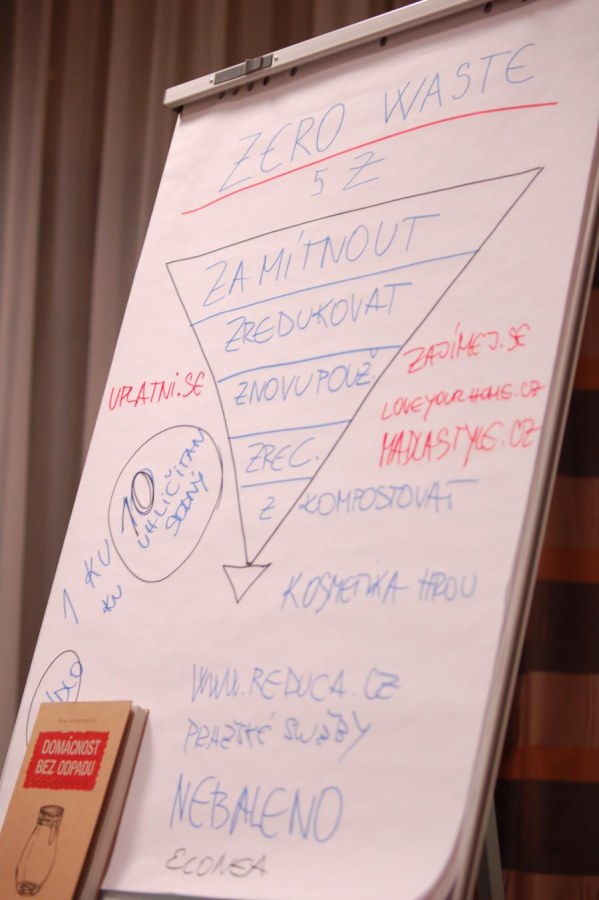 ZERO WASTE
5 Z
ZAMÍTNOUT
ZREDUKOVAT
ZNOVUPOUŽ.
ZREC.
Z KOMPOSTOVAT
UPLATNI.SE
ZAJÍMEJ.SE
LOVEYOURHOME.CZ
MADLASTYLE.CZ
10
UHLIČITAN
SODNÝ
1 KU
KU
KOSMETIKA HROU
WWW.REDUCA.CZ
PRAŽSKÉ SLUŽBY
NEBALENO
ECONEA
DOMÁCNOST
BEZ ODPADU